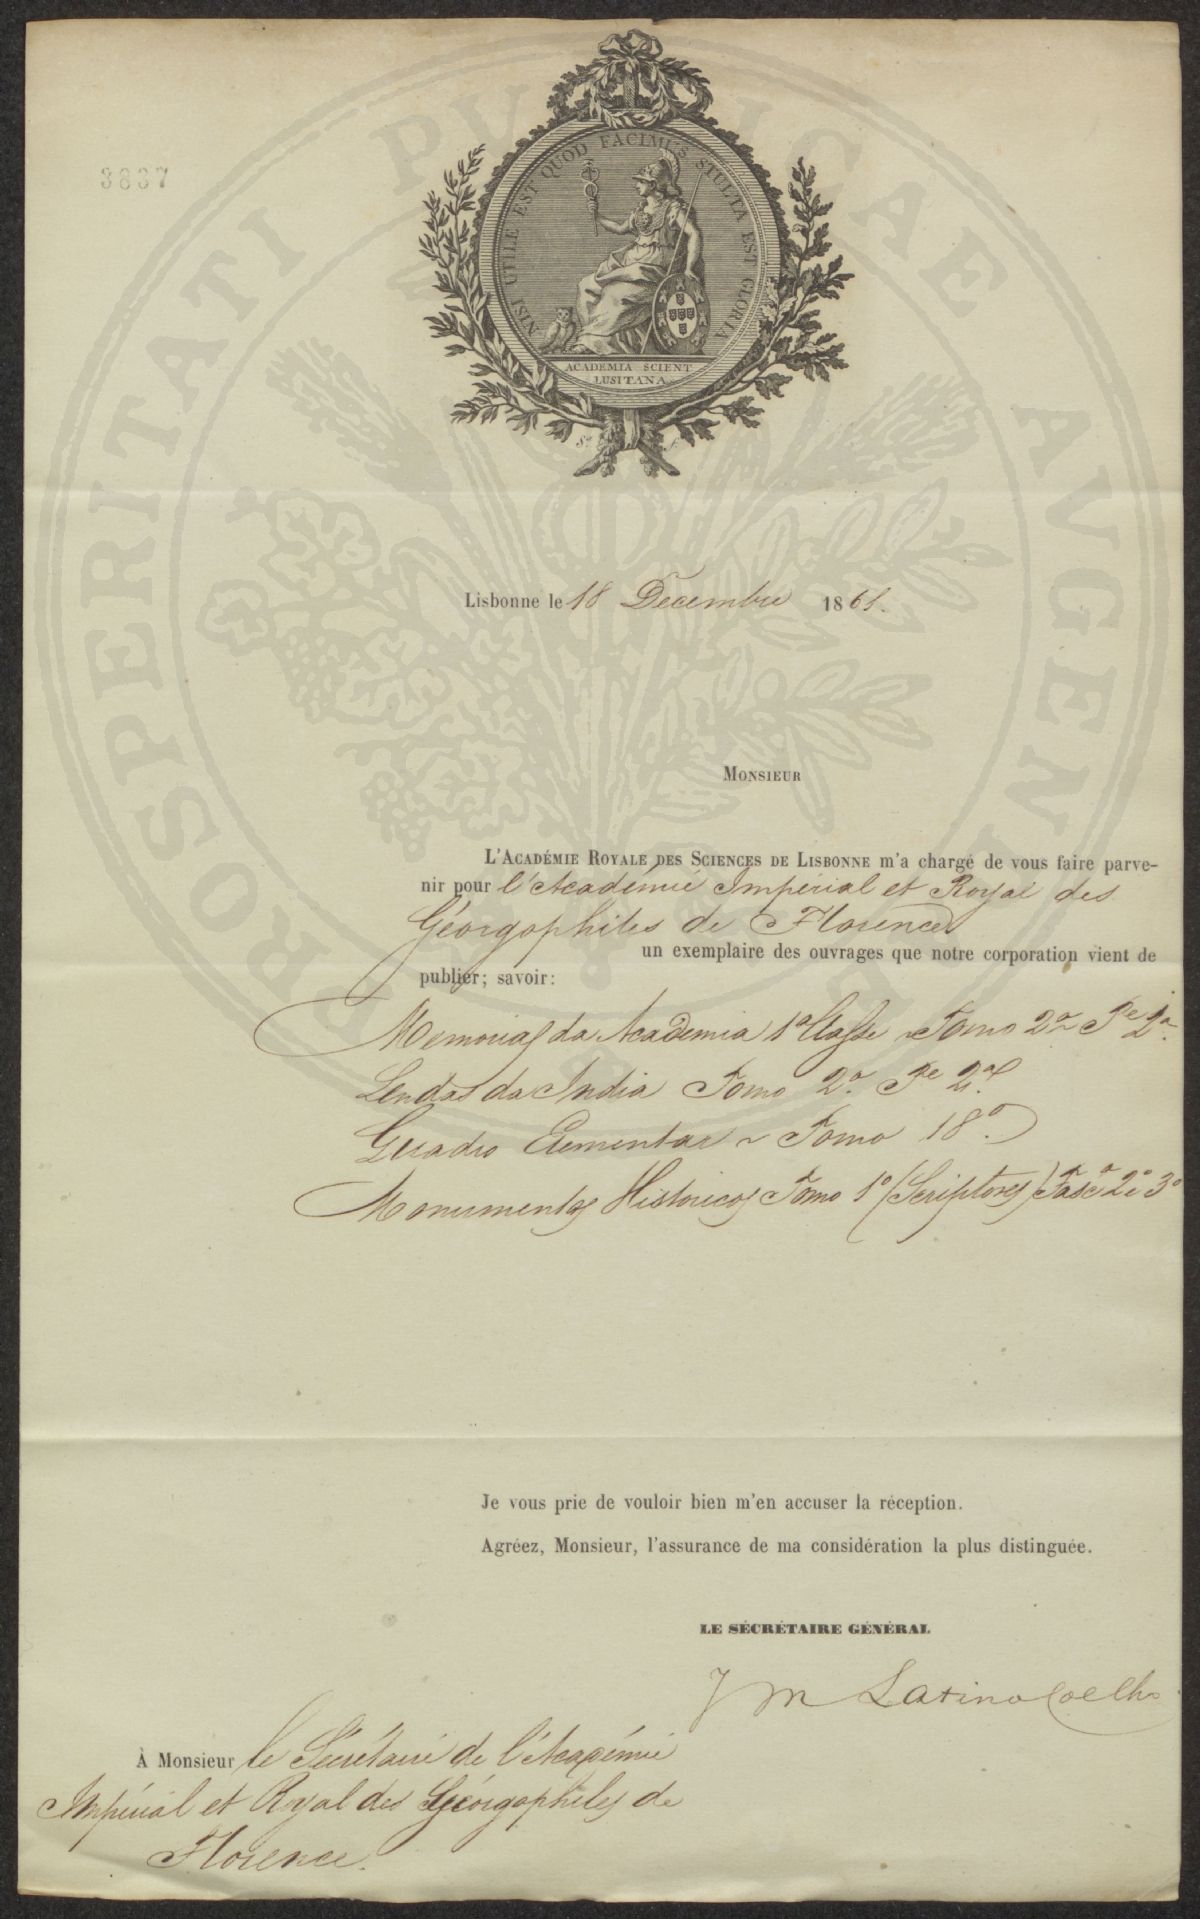 3837
NISI UTILE EST QUOD FACIMUS STULTA EST GLORIA
ACADEMIA SCIENT
LUSITANA
PROSPERITATI PVBLICAE AVGENDAE
Lisbonne le 18 Decembre 1861.
MONSIEUR
L'ACADÉMIE ROYALE DES SCIENCES DE LISBONNE m'a chargé de vous faire parve-
nir pour l'Académie Impérial et Royal des
Géorgophiles de Florence
un exemplaire des ouvrages que notre corporation vient de
publier; savoir:
Memorias da Academia 1ª Classe Tomo 2º Pe 2ª.
Lendas da India Tomo 2º. Pe 2ª
Quadro Elementar Tomo 18º.
Monumentos Historicos Tomo 1º (Scriptores) Fasc 2º 3º
Je vous prie de vouloir bien m'en accuser la réception.
Agréez, Monsieur, l'assurance de ma considération la plus distinguée.
LE SÉCRÉTAIRE GÉNÉRAL
J M Latino Coelho
À Monsieur le Sécrétaire de l'Académie
Impérial et Royal des Géorgophiles de
Florence.